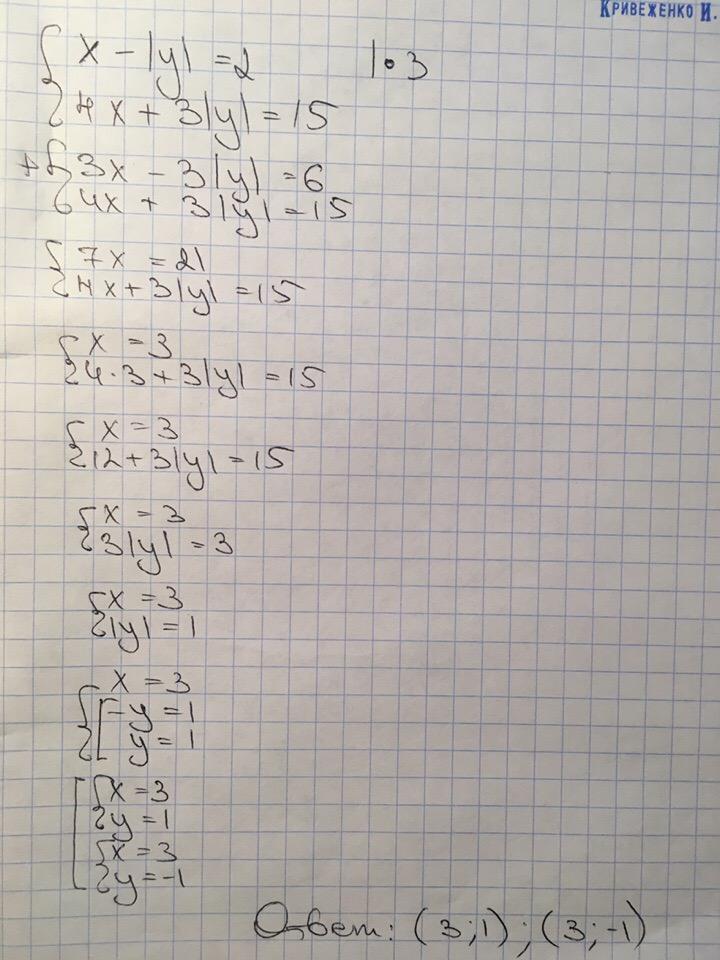 Кривеженко И.
{ x - |y| = 2 | • 3
4x + 3|y| = 15
+ { 3x - 3|y| = 6
4x + 3|y| = 15
{ 7x = 21
4x + 3|y| = 15
{ x = 3
4 · 3 + 3|y| = 15
{ x = 3
12 + 3|y| = 15
{ x = 3
3|y| = 3
{ x = 3
|y| = 1
{ x = 3
[ -y = 1
y = 1
[ { x = 3
y = 1
{ x = 3
y = -1
Ответ: (3; 1); (3; -1)